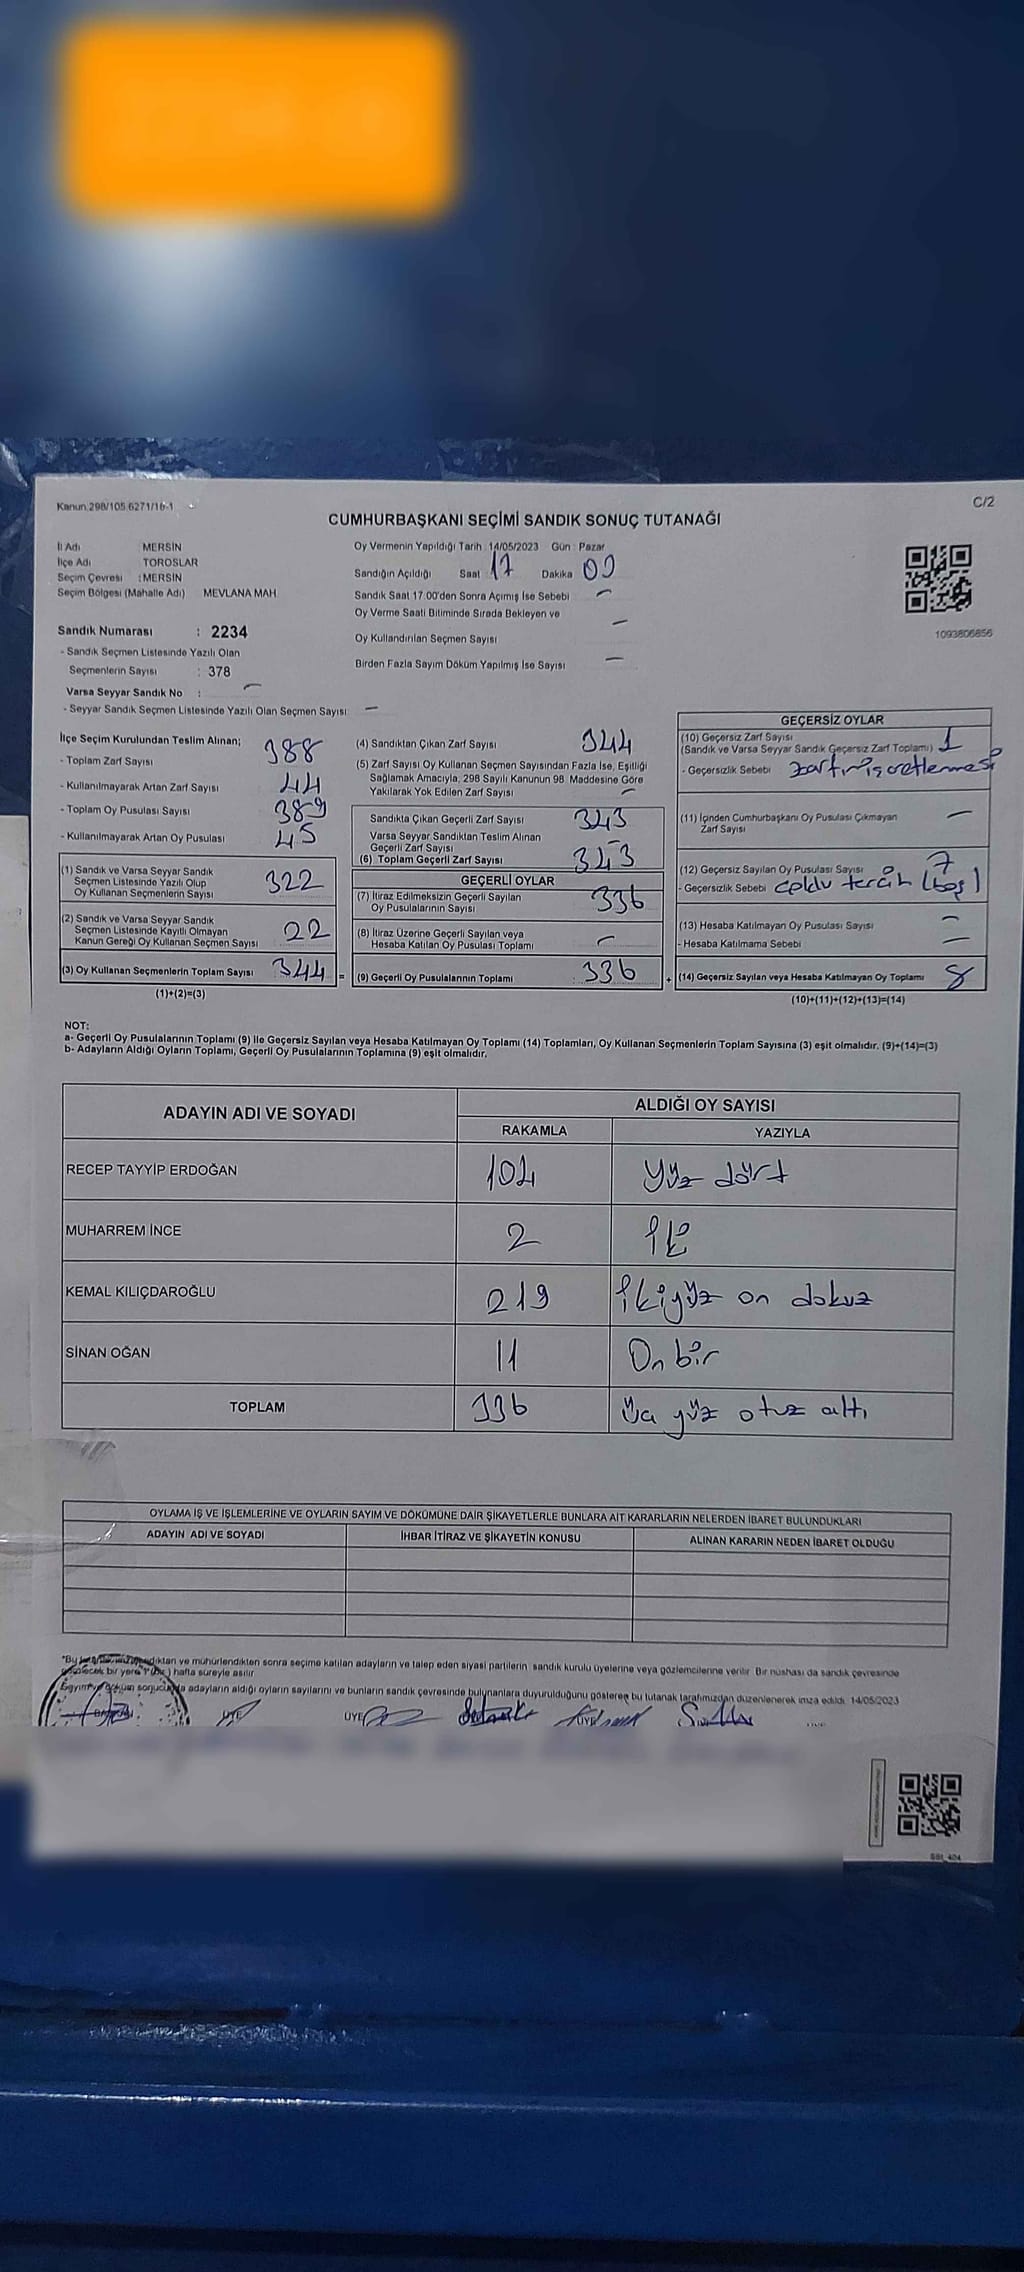 Kanun:298/105 6271/16-1
C/2
CUMHURBAŞKANI SEÇİMİ SANDIK SONUÇ TUTANAĞI
İl Adı : MERSİN
İlçe Adı TOROSLAR
Seçim Çevresi : MERSİN
Seçim Bölgesi (Mahalle Adı) MEVLANA MAH.
Sandık Numarası : 2234
- Sandık Seçmen Listesinde Yazılı Olan
Seçmenlerin Sayısı : 378
Varsa Seyyar Sandık No : —
- Seyyar Sandık Seçmen Listesinde Yazılı Olan Seçmen Sayısı: —
Oy Vermenin Yapıldığı Tarih : 14/05/2023 Gün : Pazar
Sandığın Açıldığı Saat 17 Dakika 00
Sandık Saat 17.00'den Sonra Açımış İse Sebebi —
Oy Verme Saati Bitiminde Sırada Bekleyen ve
Oy Kullandırılan Seçmen Sayısı —
Birden Fazla Sayım Döküm Yapılmış İse Sayısı —
1093806856
İlçe Seçim Kurulundan Teslim Alınan;
- Toplam Zarf Sayısı 388
- Kullanılmayarak Artan Zarf Sayısı 44
- Toplam Oy Pusulası Sayısı 389
- Kullanılmayarak Artan Oy Pusulası 45
(1) Sandık ve Varsa Seyyar Sandık
Seçmen Listesinde Yazılı Olup
Oy Kullanan Seçmenlerin Sayısı 322
(2) Sandık ve Varsa Seyyar Sandık
Seçmen Listesinde Kayıtlı Olmayan
Kanun Gereği Oy Kullanan Seçmen Sayısı 22
(3) Oy Kullanan Seçmenlerin Toplam Sayısı 344 =
(1)+(2)=(3)
(4) Sandıktan Çıkan Zarf Sayısı 344
(5) Zarf Sayısı Oy Kullanan Seçmen Sayısından Fazla İse, Eşitliği
Sağlamak Amacıyla, 298 Sayılı Kanunun 98. Maddesine Göre
Yakılarak Yok Edilen Zarf Sayısı —
Sandıkta Çıkan Geçerli Zarf Sayısı 343
Varsa Seyyar Sandıktan Teslim Alınan
Geçerli Zarf Sayısı —
(6) Toplam Geçerli Zarf Sayısı 343
GEÇERLİ OYLAR
(7) İtiraz Edilmeksizin Geçerli Sayılan
Oy Pusulalarının Sayısı 336
(8) İtiraz Üzerine Geçerli Sayılan veya
Hesaba Katılan Oy Pusulası Toplamı —
(9) Geçerli Oy Pusulalarının Toplamı 336 +
GEÇERSİZ OYLAR
(10) Geçersiz Zarf Sayısı
(Sandık ve Varsa Seyyar Sandık Geçersiz Zarf Toplamı) 1
- Geçersizlik Sebebi zarfın işaretlenmesi
(11) İçinden Cumhurbaşkanı Oy Pusulası Çıkmayan
Zarf Sayısı —
(12) Geçersiz Sayılan Oy Pusulası Sayısı 7
- Geçersizlik Sebebi çoklu tercih (boş)
(13) Hesaba Katılmayan Oy Pusulası Sayısı —
- Hesaba Katılmama Sebebi —
(14) Geçersiz Sayılan veya Hesaba Katılmayan Oy Toplamı 8
(10)+(11)+(12)+(13)=(14)
NOT:
a- Geçerli Oy Pusulalarının Toplamı (9) ile Geçersiz Sayılan veya Hesaba Katılmayan Oy Toplamı (14) Toplamları, Oy Kullanan Seçmenlerin Toplam Sayısına (3) eşit olmalıdır. (9)+(14)=(3)
b- Adayların Aldığı Oyların Toplamı, Geçerli Oy Pusulalarının Toplamına (9) eşit olmalıdır.
ADAYIN ADI VE SOYADI
ALDIĞI OY SAYISI
RAKAMLA YAZIYLA
RECEP TAYYİP ERDOĞAN 104 Yüz dört
MUHARREM İNCE 2 İki
KEMAL KILIÇDAROĞLU 219 İkiyüz on dokuz
SİNAN OĞAN 11 On bir
TOPLAM 336 Üç yüz otuz altı
OYLAMA İŞ VE İŞLEMLERİNE VE OYLARIN SAYIM VE DÖKÜMÜNE DAİR ŞİKAYETLERLE BUNLARA AİT KARARLARIN NELERDEN İBARET BULUNDUKLARI
ADAYIN ADI VE SOYADI İHBAR İTİRAZ VE ŞİKAYETİN KONUSU ALINAN KARARIN NEDEN İBARET OLDUĞU
"Bu mühürlendikten sonra seçime katılan adayların ve talep eden siyasi partilerin sandık kurulu üyelerine veya gözlemcilerine verilir. Bir nüshası da sandık çevresinde
bir yere 1 hafta süreyle asılır
adayların aldığı oyların sayılarını ve bunların sandık çevresinde bulunanlara duyurulduğunu gösteren bu tutanak tarafımızdan düzenlenerek imza edildi. 14/05/2023
BAŞKAN ÜYE ÜYE ÜYE